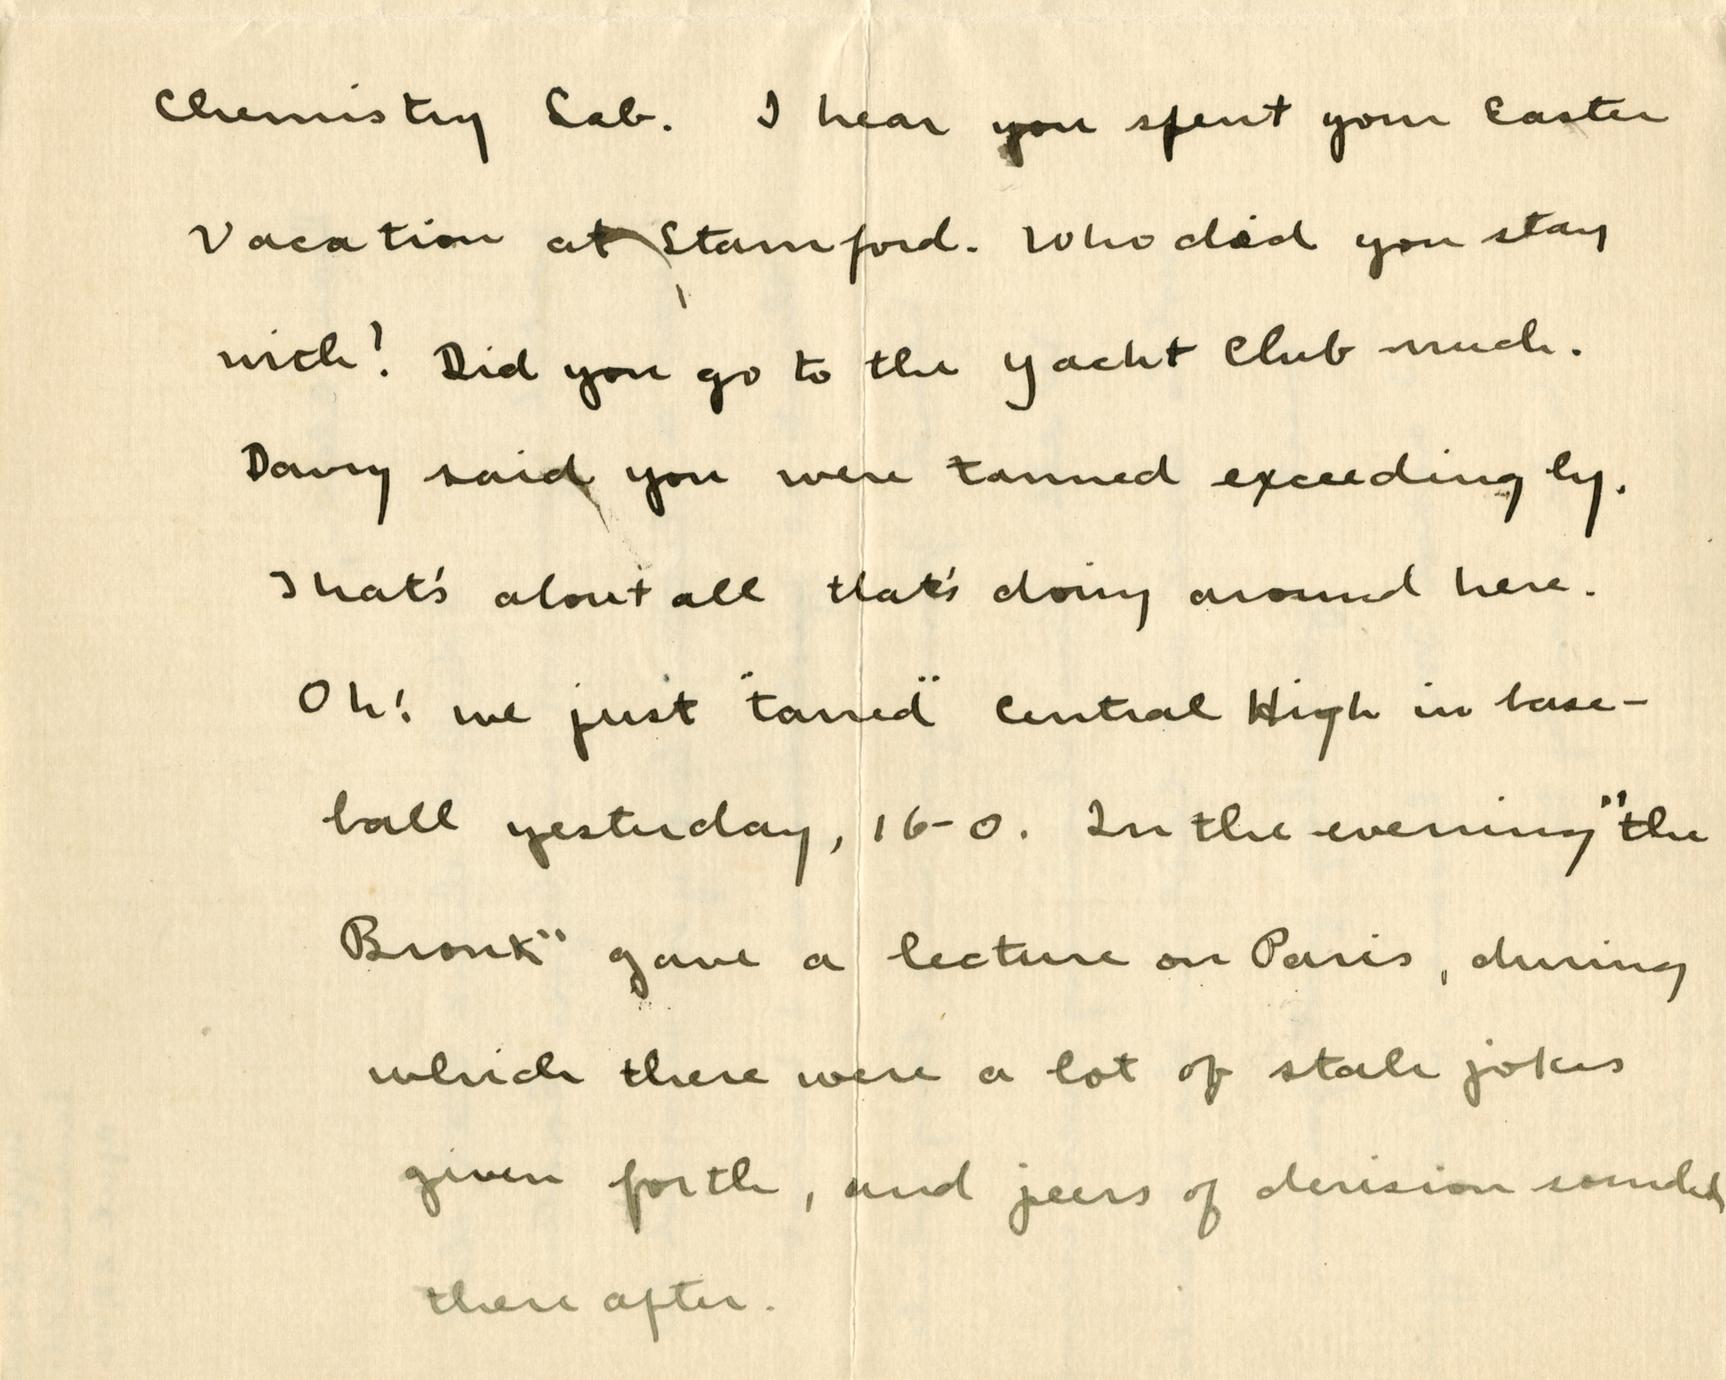 Chemistry Lab. I hear you spent your Easter
Vacation at Stamford. Who did you stay
with? Did you go to the Yacht Club much.
Davy said you were tanned exceedingly.
That's about all that's doing around here.
Oh! we just "tarred" Central High in base-
ball yesterday, 16-0. In the evening "the
Bronx" gave a lecture on Paris, during
which there were a lot of stale jokes
given forth, and jeers of derision sounded
there after.